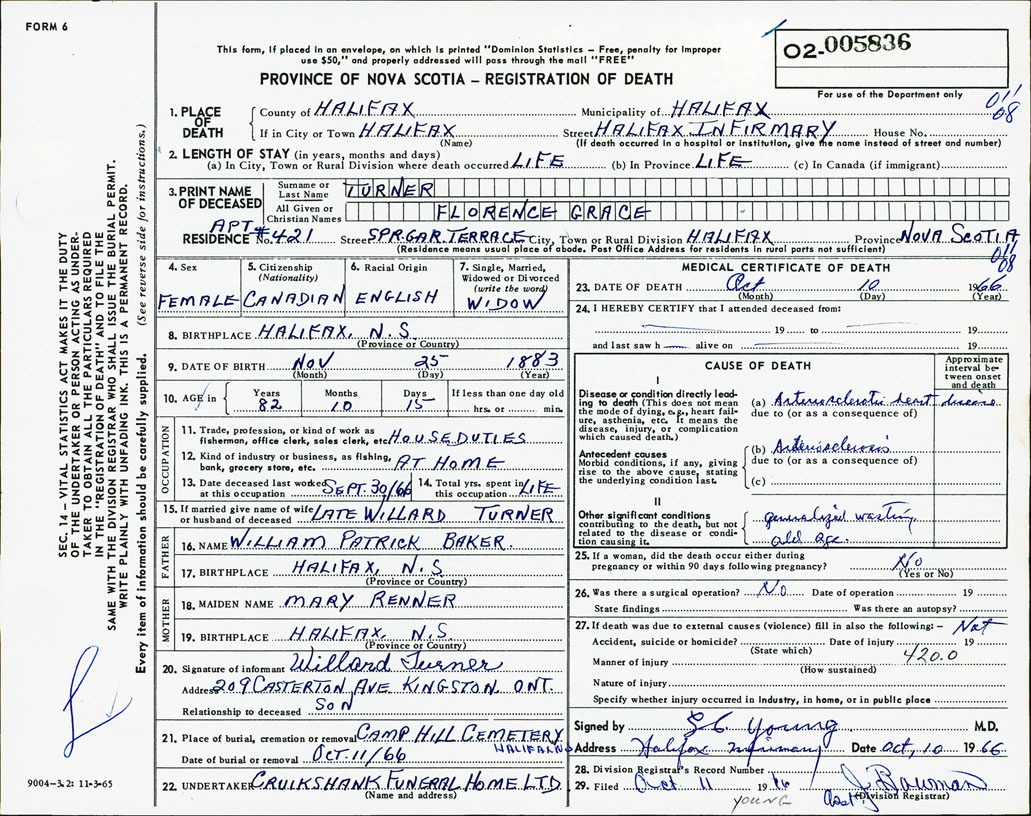 FORM 6
This form, if placed in an envelope, on which is printed "Dominion Statistics – Free, penalty for improper
use $50," and properly addressed will pass through the mail "FREE"
PROVINCE OF NOVA SCOTIA – REGISTRATION OF DEATH
O2-005836
For use of the Department only
011
08
1. PLACE OF DEATH
County of HALIFAX Municipality of HALIFAX
If in City or Town HALIFAX Street HALIFAX INFIRMARY House No.
(Name) (If death occurred in a hospital or institution, give the name instead of street and number)
2. LENGTH OF STAY (in years, months and days)
(a) In City, Town or Rural Division where death occurred LIFE (b) In Province LIFE (c) In Canada (if immigrant)
3. PRINT NAME OF DECEASED
Surname or Last Name TURNER
All Given or Christian Names FLORENCE GRACE
APT
RESIDENCE No. #421 Street SPR.GAR.TERRACE City, Town or Rural Division HALIFAX Province NOVA SCOTIA
(Residence means usual place of abode. Post Office Address for residents in rural parts not sufficient)
011
08
4. Sex FEMALE
5. Citizenship (Nationality) CANADIAN
6. Racial Origin ENGLISH
7. Single, Married, Widowed or Divorced (write the word) WIDOW
8. BIRTHPLACE HALIFAX, N.S.
(Province or Country)
9. DATE OF BIRTH NOV 25 1883
(Month) (Day) (Year)
10. AGE in Years 82 Months 10 Days 15 If less than one day old hrs. or min.
OCCUPATION
11. Trade, profession, or kind of work as
fisherman, office clerk, sales clerk, etc. HOUSE DUTIES
12. Kind of industry or business, as fishing,
bank, grocery store, etc. AT HOME
13. Date deceased last worked at this occupation SEPT. 30/66 14. Total yrs. spent in this occupation LIFE
15. If married give name of wife or husband of deceased LATE WILLARD TURNER
FATHER
16. NAME WILLIAM PATRICK BAKER.
17. BIRTHPLACE HALIFAX, N.S
(Province or Country)
MOTHER
18. MAIDEN NAME MARY RENNER
19. BIRTHPLACE HALIFAX, N.S.
(Province or Country)
20. Signature of informant Willard Turner
Address 209 CASTERTON AVE KINGSTON. ONT.
Relationship to deceased SON
21. Place of burial, cremation or removal CAMP HILL CEMETERY
HALIFAX NS
Date of burial or removal OCT. 11/66
22. UNDERTAKER CRUIKSHANK FUNERAL HOME LTD
(Name and address)
MEDICAL CERTIFICATE OF DEATH
23. DATE OF DEATH Oct 10 1966
(Month) (Day) (Year)
24. I HEREBY CERTIFY that I attended deceased from:
19 to 19
and last saw h alive on 19
CAUSE OF DEATH
Approximate interval between onset and death
I
Disease or condition directly leading to death (This does not mean
the mode of dying, e.g., heart failure, asthenia, etc. It means the
disease, injury, or complication
which caused death.)
(a) Arteriosclerotic heart disease
due to (or as a consequence of)
Antecedent causes
Morbid conditions, if any, giving
rise to the above cause, stating
the underlying condition last.
(b) Arteriosclerosis
due to (or as a consequence of)
(c)
II
Other significant conditions
contributing to the death, but not
related to the disease or condition causing it.
generalized wasting
old age.
25. If a woman, did the death occur either during
pregnancy or within 90 days following pregnancy? No
(Yes or No)
26. Was there a surgical operation? No Date of operation 19
State findings Was there an autopsy?
27. If death was due to external causes (violence) fill in also the following:– Nat
Accident, suicide or homicide? Date of injury 19
(State which)
420.0
Manner of injury
(How sustained)
Nature of injury
Specify whether injury occurred in industry, in home, or in public place
Signed by S C Young M.D.
Address Halifax Infirmary Date Oct, 10 1966
28. Division Registrar's Record Number
29. Filed Oct 11 1966 J. Bauman
Asst. (Division Registrar)
YOUNG
SEC. 14 – VITAL STATISTICS ACT MAKES IT THE DUTY
OF THE UNDERTAKER OR PERSON ACTING AS UNDER-
TAKER TO OBTAIN ALL THE PARTICULARS REQUIRED
IN THE "REGISTRATION OF DEATH" AND TO FILE THE
SAME WITH THE DIVISION REGISTRAR WHO SHALL ISSUE THE BURIAL PERMIT.
WRITE PLAINLY WITH UNFADING INK. THIS IS A PERMANENT RECORD.
Every item of information should be carefully supplied. (See reverse side for instructions.)
9004-3.2: 11-3-65